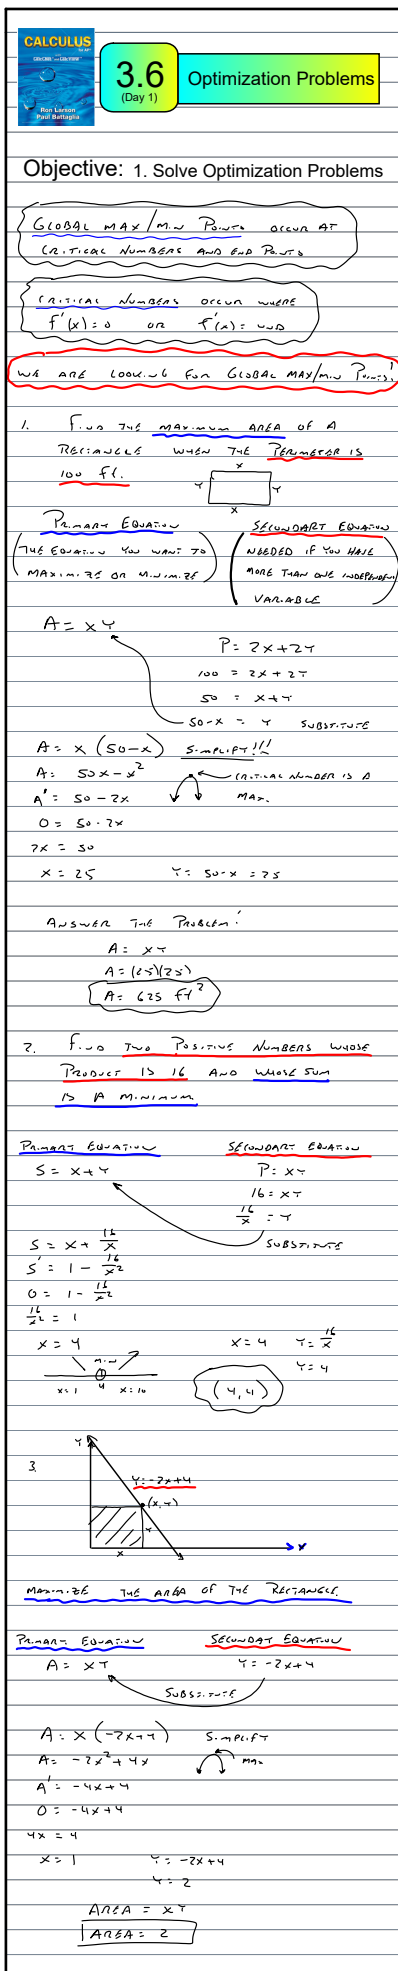 CALCULUS
for AP®
Ron Larson
Paul Battaglia
3.6
(Day 1)
Optimization Problems
Objective: 1. Solve Optimization Problems
GLOBAL MAX/MIN POINTS OCCUR AT
CRITICAL NUMBERS AND END POINTS
CRITICAL NUMBERS OCCUR WHERE
f'(x)=0 OR f'(x)=UND
WE ARE LOOKING FOR GLOBAL MAX/MIN POINTS!
1. FIND THE MAXIMUM AREA OF A
RECTANGLE WHEN THE PERIMETER IS
100 ft.
x
Y Y
x
PRIMARY EQUATION
(THE EQUATION YOU WANT TO
MAXIMIZE OR MINIMIZE)
SECONDARY EQUATION
(NEEDED IF YOU HAVE
MORE THAN ONE INDEPENDENT
VARIABLE)
A = xY
P = 2x+2Y
100 = 2x+2Y
50 = x+Y
50-x = Y SUBSTITUTE
A = x(50-x) SIMPLIFY!!!
A = 50x-x²
CRITICAL NUMBER IS A
MAX.
A' = 50-2x
0 = 50-2x
2x = 50
x = 25 Y = 50-x = 25
ANSWER THE PROBLEM!
A = xY
A = (25)(25)
A = 625 ft²
2. FIND TWO POSITIVE NUMBERS WHOSE
PRODUCT IS 16 AND WHOSE SUM
IS A MINIMUM
PRIMARY EQUATION SECONDARY EQUATION
S = x+Y P = xY
16 = xY
16/x = Y
SUBSTITUTE
S = x + 16/x
S' = 1 - 16/x²
0 = 1 - 16/x²
16/x² = 1
x = 4 x = 4 Y = 16/x
Y = 4
MIN
x=1 4 x=10
(4,4)
3.
Y
Y=-2x+4
(x,Y)
Y
x
x
MAXIMIZE THE AREA OF THE RECTANGLE
PRIMARY EQUATION SECONDAY EQUATION
A = xY Y = -2x+4
SUBSTITUTE
A = x(-2x+4) SIMPLIFY
A = -2x²+4x MAX
A' = -4x+4
0 = -4x+4
4x = 4
x = 1 Y = -2x+4
Y = 2
AREA = xY
AREA = 2